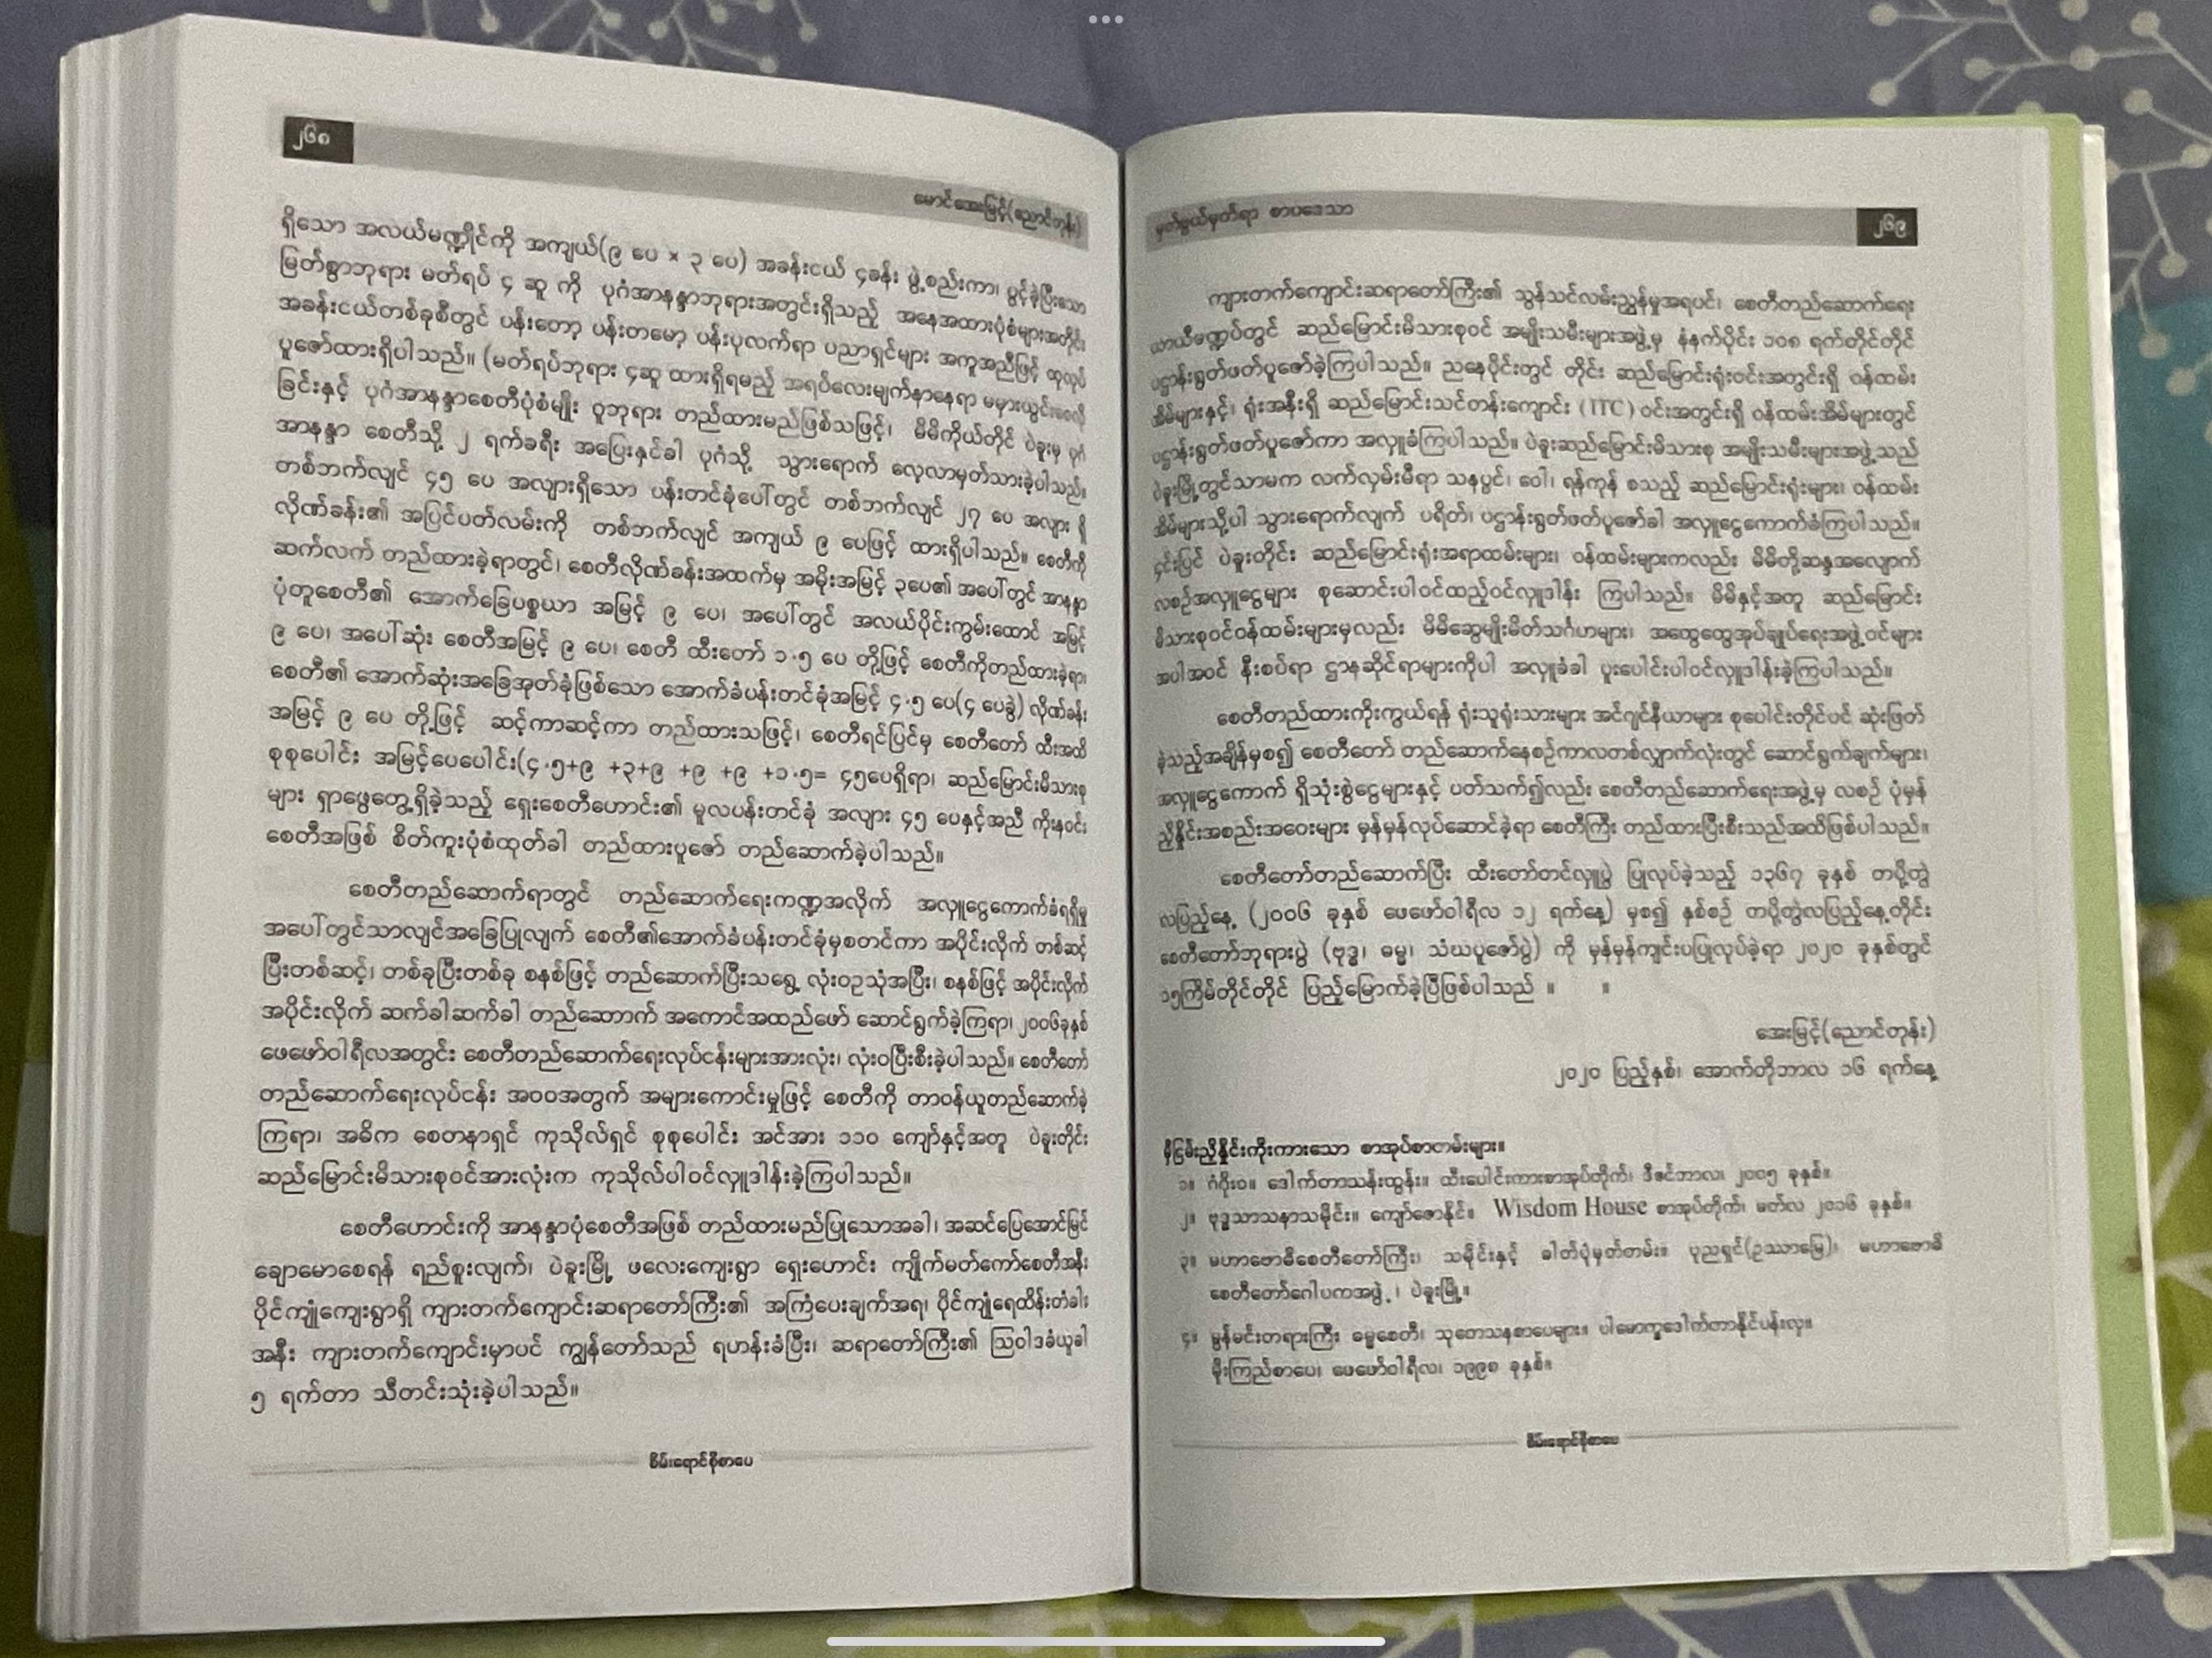 ၂၆၈
မောင်အေးမြင့်(ညောင်တုန်း)
ရှိသော အလယ်မဏ္ဍိုင်ကို အကျယ်(၉ ပေ × ၃ ပေ) အခန်းငယ် ၄ခန်း ဖွဲ့စည်းကာ၊ ပွင့်ခဲ့ပြီးသော
မြတ်စွာဘုရား မတ်ရပ် ၄ ဆူ ကို ပုဂံအာနန္ဒာဘုရားအတွင်းရှိသည့် အနေအထားပုံစံများအတိုင်း
အခန်းငယ်တစ်ခုစီတွင် ပန်းတော့ ပန်းတမော့ ပန်းပုလက်ရာ ပညာရှင်များ အကူအညီဖြင့် ထုလုပ်
ပူဇော်ထားရှိပါသည်။ (မတ်ရပ်ဘုရား ၄ဆူ ထားရှိရမည့် အရပ်လေးမျက်နှာနေရာ မမှားယွင်းစေလို
ခြင်းနှင့် ပုဂံအာနန္ဒာစေတီပုံစံမျိုး ဂူဘုရား တည်ထားမည်ဖြစ်သဖြင့်၊ မိမိကိုယ်တိုင် ပဲခူးမှ ပုဂံ
အာနန္ဒာ စေတီသို့ ၂ ရက်ခရီး အပြေးနှင်ခါ ပုဂံသို့ သွားရောက် လေ့လာမှတ်သားခဲ့ပါသည်။
တစ်ဘက်လျင် ၄၅ ပေ အလျားရှိသော ပန်းတင်ခုံပေါ်တွင် တစ်ဘက်လျင် ၂၇ ပေ အလျား ရှိ
လိုဏ်ခန်း၏ အပြင်ပတ်လမ်းကို တစ်ဘက်လျင် အကျယ် ၉ ပေဖြင့် ထားရှိပါသည်။ စေတီကို
ဆက်လက် တည်ထားခဲ့ရာတွင်၊ စေတီလိုဏ်ခန်းအထက်မှ အမိုးအမြင့် ၃ပေ၏ အပေါ်တွင် အာနန္ဒာ
ပုံတူစေတီ၏ အောက်ခြေပစ္စယာ အမြင့် ၉ ပေ၊ အပေါ်တွင် အလယ်ပိုင်းကွမ်းထောင် အမြင့်
၉ ပေ၊ အပေါ်ဆုံး စေတီအမြင့် ၉ ပေ၊ စေတီ ထီးတော် ၁.၅ ပေ တို့ဖြင့် စေတီကိုတည်ထားခဲ့ရာ၊
စေတီ၏ အောက်ဆုံးအခြေအုတ်ခုံဖြစ်သော အောက်ခံပန်းတင်ခုံအမြင့် ၄.၅ ပေ(၄ ပေခွဲ) လိုဏ်ခန်း
အမြင့် ၉ ပေ တို့ဖြင့် ဆင့်ကာဆင့်ကာ တည်ထားသဖြင့်၊ စေတီရင်ပြင်မှ စေတီတော် ထီးအထိ
စုစုပေါင်း အမြင့်ပေပေါင်း(၄.၅+၉ +၃+၉ +၉ +၉ +၁.၅= ၄၅ပေရှိရာ၊ ဆည်မြောင်းမိသားစု
များ ရှာဖွေတွေ့ရှိခဲ့သည့် ရှေးစေတီဟောင်း၏ မူလပန်းတင်ခုံ အလျား ၄၅ ပေနှင့်အညီ ကိုးနဝင်း
စေတီအဖြစ် စိတ်ကူးပုံစံထုတ်ခါ တည်ထားပူဇော် တည်ဆောက်ခဲ့ပါသည်။
စေတီတည်ဆောက်ရာတွင် တည်ဆောက်ရေးကဏ္ဍအလိုက် အလှူငွေကောက်ခံရရှိမှု
အပေါ်တွင်သာလျင်အခြေပြုလျက် စေတီ၏အောက်ခံပန်းတင်ခုံမှစတင်ကာ အပိုင်းလိုက် တစ်ဆင့်
ပြီးတစ်ဆင့်၊ တစ်ခုပြီးတစ်ခု စနစ်ဖြင့် တည်ဆောက်ပြီးသရွေ့ လုံးဝဥသုံအပြီး၊ စနစ်ဖြင့် အပိုင်းလိုက်
အပိုင်းလိုက် ဆက်ခါဆက်ခါ တည်ဆောာက် အကောင်အထည်ဖော် ဆောင်ရွက်ခဲ့ကြရာ၊ ၂၀၀၆ခုနှစ်
ဖေဖော်ဝါရီလအတွင်း စေတီတည်ဆောက်ရေးလုပ်ငန်းများအားလုံး၊ လုံးဝပြီးစီးခဲ့ပါသည်။ စေတီတော်
တည်ဆောက်ရေးလုပ်ငန်း အဝဝအတွက် အများကောင်းမှုဖြင့် စေတီကို တာဝန်ယူတည်ဆောက်ခဲ့
ကြရာ၊ အဓိက စေတနာရှင် ကုသိုလ်ရှင် စုစုပေါင်း အင်အား ၁၁၀ ကျော်နှင့်အတူ ပဲခူးတိုင်း
ဆည်မြောင်းမိသားစုဝင်အားလုံးက ကုသိုလ်ပါဝင်လှူဒါန်းခဲ့ကြပါသည်။
စေတီဟောင်းကို အာနန္ဒာပုံစေတီအဖြစ် တည်ထားမည်ပြုသောအခါ၊ အဆင်ပြေအောင်မြင်
ချောမောစေရန် ရည်စူးလျက်၊ ပဲခူးမြို့ ဖလေးကျေးရွာ ရှေးဟောင်း ကျိုက်မတ်ကော်စေတီအနီး
ပိုင်ကျုံကျေးရွာရှိ ကျားတက်ကျောင်းဆရာတော်ကြီး၏ အကြံပေးချက်အရ၊ ပိုင်ကျုံရေထိန်းတံခါး
အနီး ကျားတက်ကျောင်းမှာပင် ကျွန်တော်သည် ရဟန်းခံပြီး၊ ဆရာတော်ကြီး၏ သြဝါဒခံယူခါ
၅ ရက်တာ သီတင်းသုံးခဲ့ပါသည်။
စိမ်းရောင်စိုစာပေ
မှတ်ဖွယ်မှတ်ရာ စာပဒေသာ
၂၆၉
ကျားတက်ကျောင်းဆရာတော်ကြီး၏ သွန်သင်လမ်းညွှန်မှုအရပင်၊ စေတီတည်ဆောက်ရေး
ယာယီမဏ္ဍပ်တွင် ဆည်မြောင်းမိသားစုဝင် အမျိုးသမီးများအဖွဲ့မှ နံနက်ပိုင်း ၁၀၈ ရက်တိုင်တိုင်
ပဋ္ဌာန်းရွတ်ဖတ်ပူဇော်ခဲ့ကြပါသည်။ ညနေပိုင်းတွင် တိုင်း ဆည်မြောင်းရုံးဝင်းအတွင်းရှိ ဝန်ထမ်း
အိမ်များနှင့်၊ ရုံးအနီးရှိ ဆည်မြောင်းသင်တန်းကျောင်း (ITC) ဝင်းအတွင်းရှိ ဝန်ထမ်းအိမ်များတွင်
ပဋ္ဌာန်းရွတ်ဖတ်ပူဇော်ကာ အလှူခံကြပါသည်။ ပဲခူးဆည်မြောင်းမိသားစု အမျိုးသမီးများအဖွဲ့သည်
ပဲခူးမြို့တွင်သာမက လက်လှမ်းမီရာ သနပ်ပင်၊ ဝေါ၊ ရန်ကုန် စသည့် ဆည်မြောင်းရုံးများ၊ ဝန်ထမ်း
အိမ်များသို့ပါ သွားရောက်လျက် ပရိတ်၊ ပဋ္ဌာန်းရွတ်ဖတ်ပူဇော်ခါ အလှူငွေကောက်ခံကြပါသည်။
၄င်းပြင် ပဲခူးတိုင်း ဆည်မြောင်းရုံးအရာထမ်းများ၊ ဝန်ထမ်းများကလည်း မိမိတို့ဆန္ဒအလျောက်
လစဉ်အလှူငွေများ စုဆောင်းပါဝင်ထည့်ဝင်လှူဒါန်း ကြပါသည်။ မိမိနှင့်အတူ ဆည်မြောင်း
မိသားစုဝင်ဝန်ထမ်းများမှလည်း မိမိဆွေမျိုးမိတ်သင်္ဂဟများ၊ အထွေထွေအုပ်ချုပ်ရေးအဖွဲ့ဝင်များ
အပါအဝင် နီးစပ်ရာ ဌာနဆိုင်ရာများကိုပါ အလှူခံခါ ပူးပေါင်းပါဝင်လှူဒါန်းခဲ့ကြပါသည်။
စေတီတည်ထားကိုးကွယ်ရန် ရုံးသူရုံးသားများ အင်ဂျင်နီယာများ စုပေါင်းတိုင်ပင် ဆုံးဖြတ်
ခဲ့သည့်အချိန်မှစ၍ စေတီတော် တည်ဆောက်နေစဉ်ကာလတစ်လျှာက်လုံးတွင် ဆောင်ရွက်ချက်များ၊
အလှူငွေကောက် ရှိသုံးစွဲငွေများနှင့် ပတ်သက်၍လည်း စေတီတည်ဆောက်ရေးအဖွဲ့မှ လစဉ် ပုံမှန်
ညှိနှိုင်းအစည်းအဝေးများ မှန်မှန်လုပ်ဆောင်ခဲ့ရာ စေတီကြီး တည်ထားပြီးစီးသည်အထိဖြစ်ပါသည်။
စေတီတော်တည်ဆောက်ပြီး ထီးတော်တင်လှူပွဲ ပြုလုပ်ခဲ့သည့် ၁၃၆၇ ခုနှစ် တပို့တွဲ
လပြည့်နေ့ (၂၀၀၆ ခုနှစ် ဖေဖော်ဝါရီလ ၁၂ ရက်နေ့) မှစ၍ နှစ်စဉ် တပို့တွဲလပြည့်နေ့တိုင်း
စေတီတော်ဘုရားပွဲ (ဗုဒ္ဓ၊ ဓမ္မ၊ သံဃပူဇော်ပွဲ) ကို မှန်မှန်ကျင်းပပြုလုပ်ခဲ့ရာ ၂၀၂၀ ခုနှစ်တွင်
၁၅ကြိမ်တိုင်တိုင် ပြည့်မြောက်ခဲ့ပြီဖြစ်ပါသည် ။ ။
အေးမြင့်(ညောင်တုန်း)
၂၀၂၀ ပြည့်နှစ်၊ အောက်တိုဘာလ ၁၆ ရက်နေ့
မှီငြမ်းညှိနှိုင်းကိုးကားသော စာအုပ်စာတမ်းများ။
၁။ ဂံဝိုးဝ။ ဒေါက်တာသန်းထွန်း။ ထီးပေါင်းကားစာအုပ်တိုက်၊ ဒီဇင်ဘာလ၊ ၂၀၀၅ ခုနှစ်။
၂။ ဗုဒ္ဓသာသနာသမိုင်း။ ကျော်ဇောနိုင်။ Wisdom House စာအုပ်တိုက်၊ မတ်လ ၂၀၁၆ ခုနှစ်။
၃။ မဟာဗောဓိစေတီတော်ကြီး၊ သမိုင်းနှင့် ဓါတ်ပုံမှတ်တမ်း။ ပုညရှင်(ဥဿာမြေ)၊ မဟာဗောဓိ
စေတီတော်ဂေါပကအဖွဲ့ ၊ ပဲခူးမြို့။
၄။ မွန်မင်းတရားကြီး ဓမ္မစေတီ၊ သုတေသနစာပေများ။ ပါမောက္ခဒေါက်တာနိုင်ပန်းလှ။
မိုးကြည်စာပေ၊ ဖေဖော်ဝါရီလ၊ ၁၉၉၈ ခုနှစ်။
စိမ်းရောင်စိုစာပေ